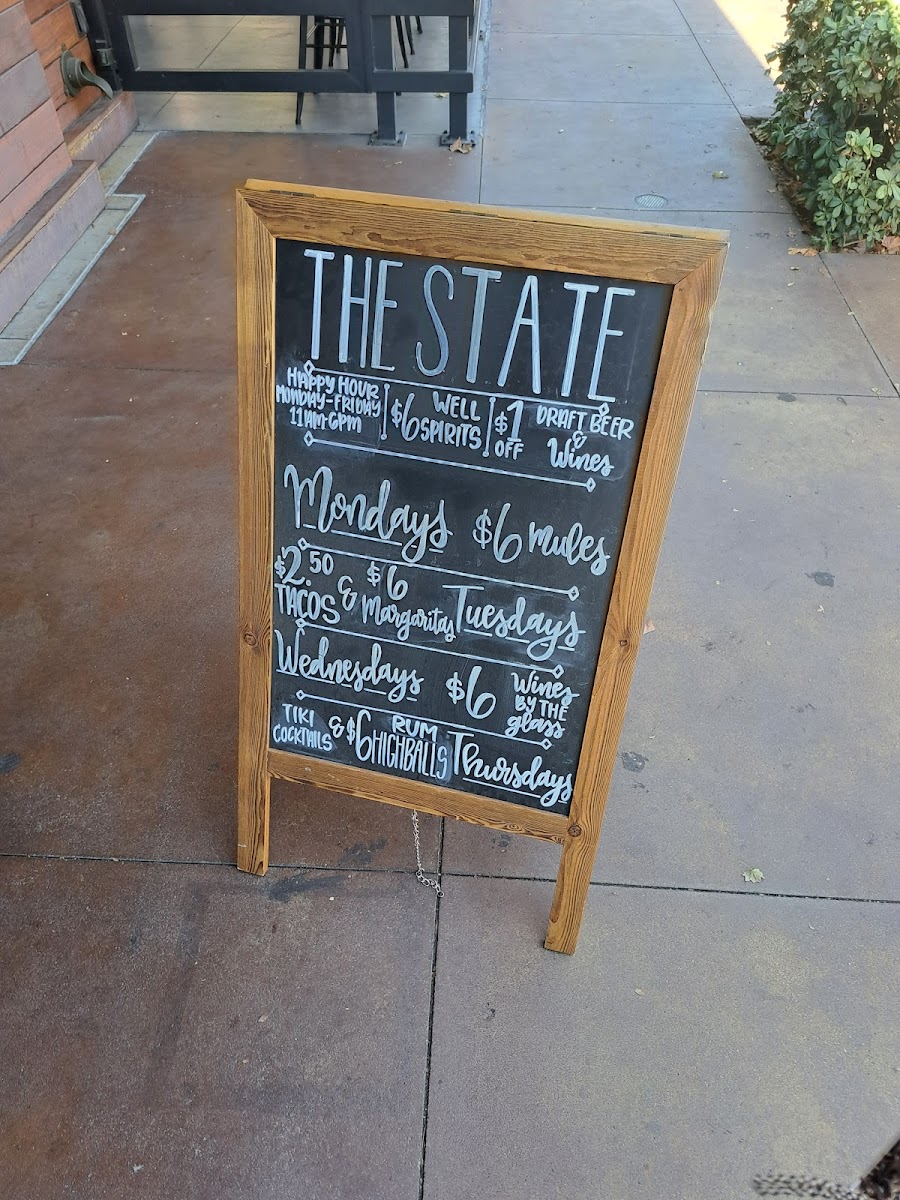 THE STATE
HAPPY HOUR
MONDAY-FRIDAY
11AM-6PM
$6 WELL
SPIRITS
$1
OFF
DRAFT BEER
&
Wines
Mondays $6 mules
$2.50
TACOS
& $6
Margaritas
Tuesdays
Wednesdays $6 Wines
BY THE
glass
TIKI
COCKTAILS
& $6 RUM
HIGHBALLS
Thursdays